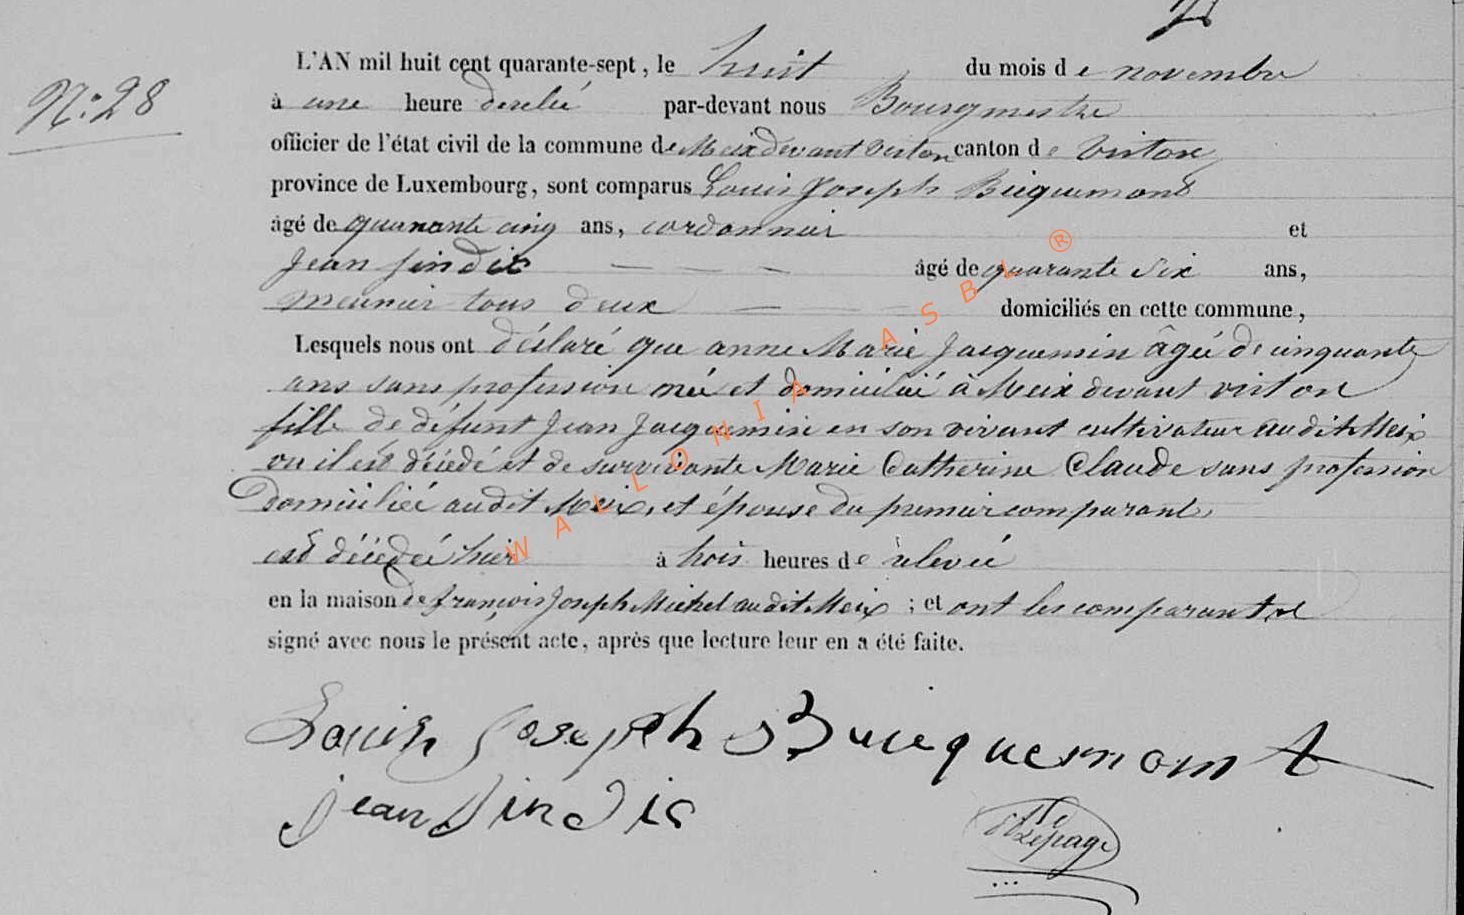 N.º 28
L'AN mil huit cent quarante-sept, le huit du mois de novembre
à une heure de relevé par-devant nous Bourgmestre
officier de l'état civil de la commune de Meix devant Virton canton de Virton
province de Luxembourg, sont comparus Louis Joseph Bicquemont
âgé de quarante cinq ans, cordonnier et
Jean Sindic âgé de quarante six ans,
meunier tous deux domiciliés en cette commune,
Lesquels nous ont déclaré que anne Marie Jacquemin âgée de cinquante
ans sans profession née et domiciliée à Meix devant virton
fille de défunt Jean Jacquemin en son vivant cultivateur audit Meix
ou il est décédé et de survivante Marie Catherine Claude sans profession
domiciliée audit Meix, et épouse du premier comparant,
est décédée hier à trois heures de relevée
en la maison de françois Joseph Michel audit Meix ; et ont les comparants
signé avec nous le présent acte, après que lecture leur en a été faite.
Louis Joseph Bicquemont
jean Sindic
Lepage
WALLONIA ASBL ®